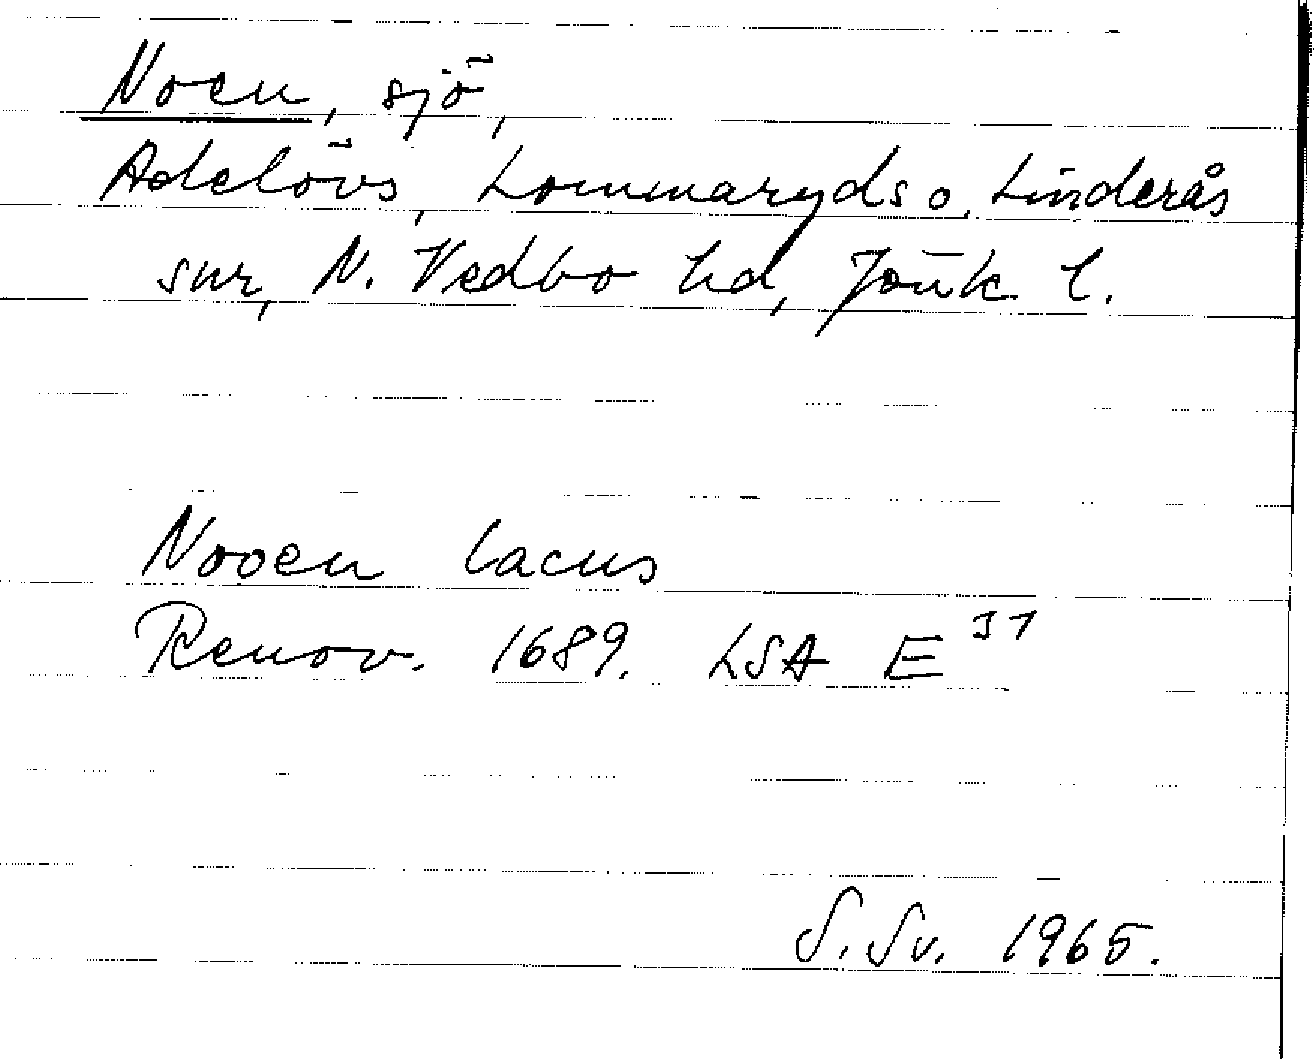 Noen, sjö,
Adelövs, Lommaryds o. Linderås
snr, N. Vedbo hd, Jönk l.
Nooen lacus
Renov. 1689. LSA E 31
S. Sv. 1965.